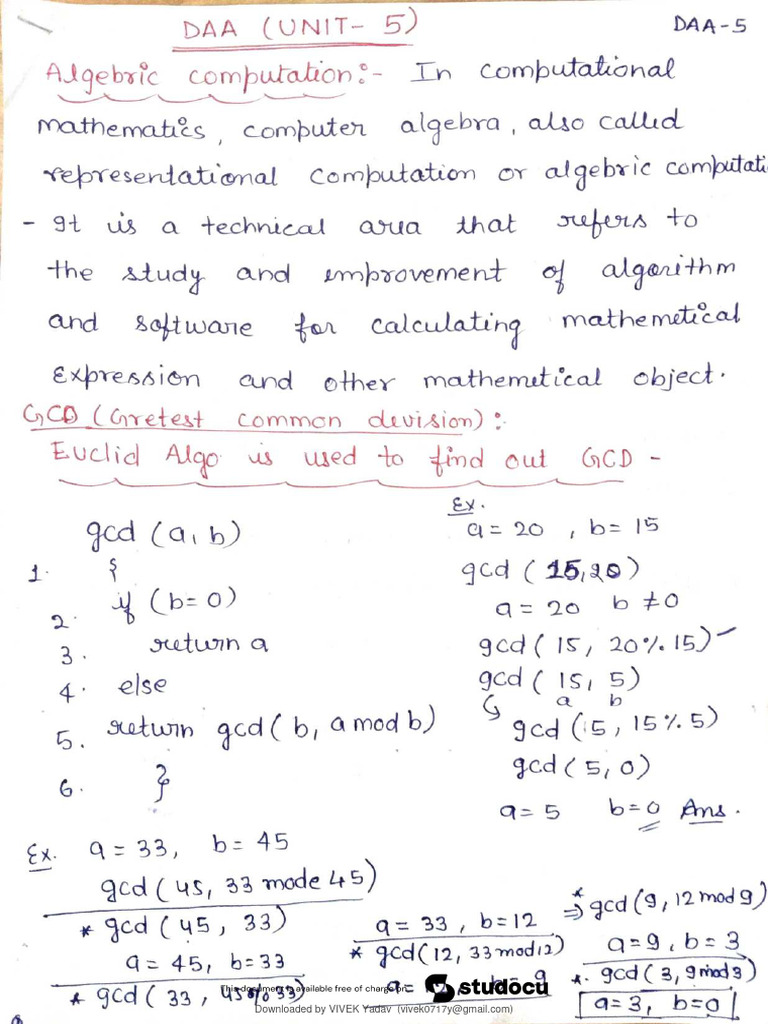 DAA (UNIT- 5)
DAA-5
Algebric computation:- In computational
mathematics, computer algebra, also called
representational computation or algebric computati
- It is a technical area that refers to
the study and improvement of algorithm
and software for calculating mathemetical
Expression and other mathemetical object.
GCD (Gretest common devision):
Euclid Algo is used to find out GCD -
gcd (a, b)
1. {
2. if (b=0)
3. return a
4. else
5. return gcd(b, a mod b)
6. }
Ex.
a = 20 , b = 15
gcd ( 15, 20)
a = 20 b ≠0
gcd( 15, 20%.15)
gcd ( 15, 5)
a b
gcd (5, 15%.5)
gcd (5, 0)
a = 5 b=0 Ans.
Ex. a = 33, b = 45
gcd ( 45, 33 mode 45)
* gcd ( 45, 33)
a = 45, b=33
* gcd ( 33, 45%33)
a = 33, b=12
* gcd(12, 33 mod 12)
a = b= 9
* ⇒ gcd(9, 12 mod 9)
a=9, b= 3
* gcd (3, 9 mod 3)
a=3, b=0
This document is available free of charge on
studocu
Downloaded by VIVEK Yadav (vivek0717y@gmail.com)